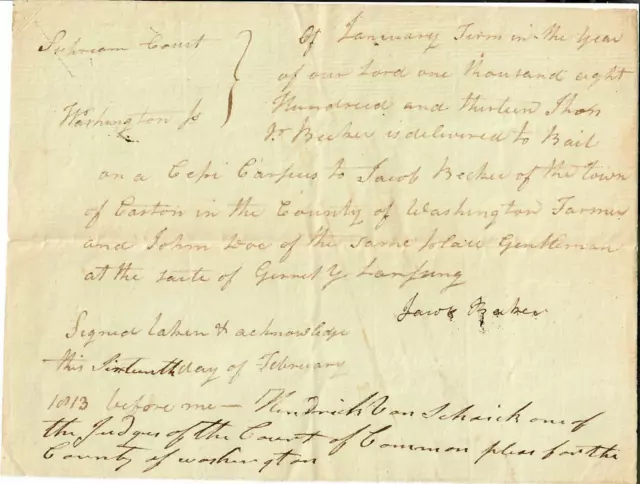 Suhream Court
Washington ss
Of January Term in the Year
of our Lord one thousand eight
Hundreed and thirteen Thos
Becker is delivered to Bail
on a Cepi Corpus to Jacob Becker of the town
of Easton in the County of Washington Farmer
and John Doe of the same place Gentleman
at the suite of Gerret Y Lansung
Jacob Beker
Signed taken & acknowledge
this Sixteenth day of February
1813 before me — Hendrick Van Schaick one of
the Judges of the Court of Common pleas for the
County of washington